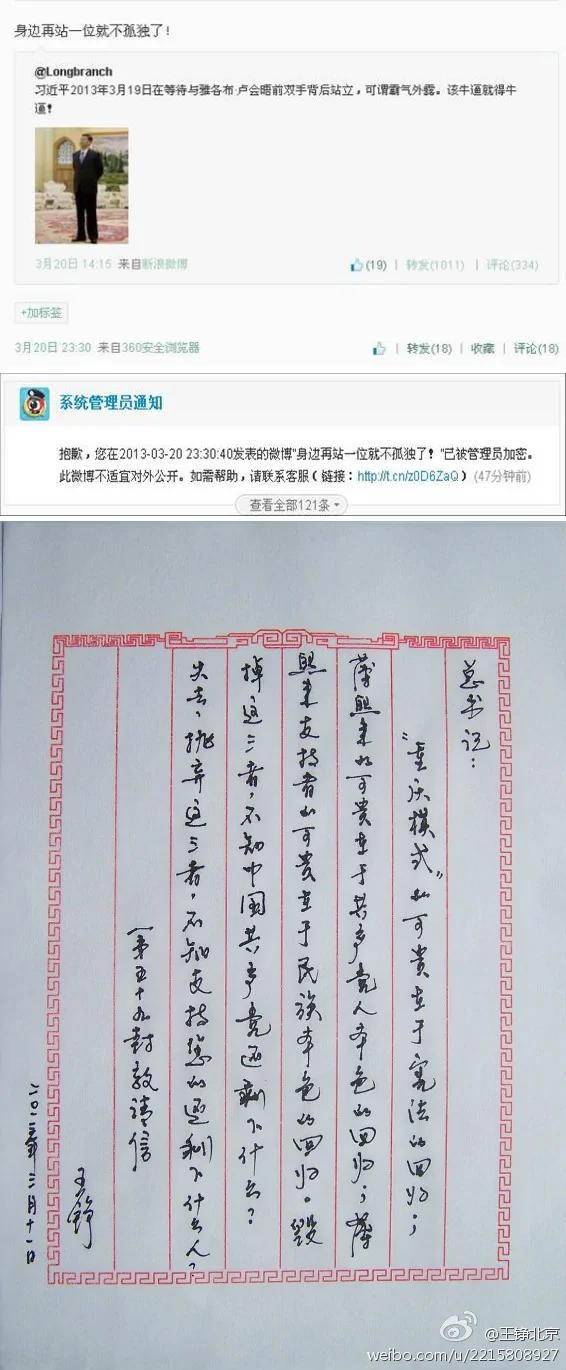 身边再站一位就不孤独了!
@Longbranch
习近平2013年3月19日在等待与雅各布·卢会晤前双手背后站立，可谓霸气外露。该牛逼就得牛
逼!
3月20日 14:15 来自新浪微博
(19) | 转发(1011) | 评论(334)
+加标签
3月20日 23:30 来自360安全浏览器
| 转发(18) | 收藏 | 评论(18)
系统管理员通知
抱歉，您在2013-03-20 23:30:40发表的微博“身边再站一位就不孤独了! ”已被管理员加密。
此微博不适宜对外公开。如需帮助，请联系客服（链接：http://t.cn/z0D6ZaQ）(47分钟前)
查看全部121条
总书记：
“重庆模式”的可贵在于宪法的回归；
薄熙来的可贵在于共产党人本色的回归；薄
熙来支持者的可贵在于民族本色的回归。毁
掉这三者，不知中国共产党还剩下什么？
失去、抛弃这三者，不知支持您的还剩下什么人？
（第五十九封敬请信
王铮
二〇一三年三月十一日
@王铮北京
weibo.com/u/2215808927